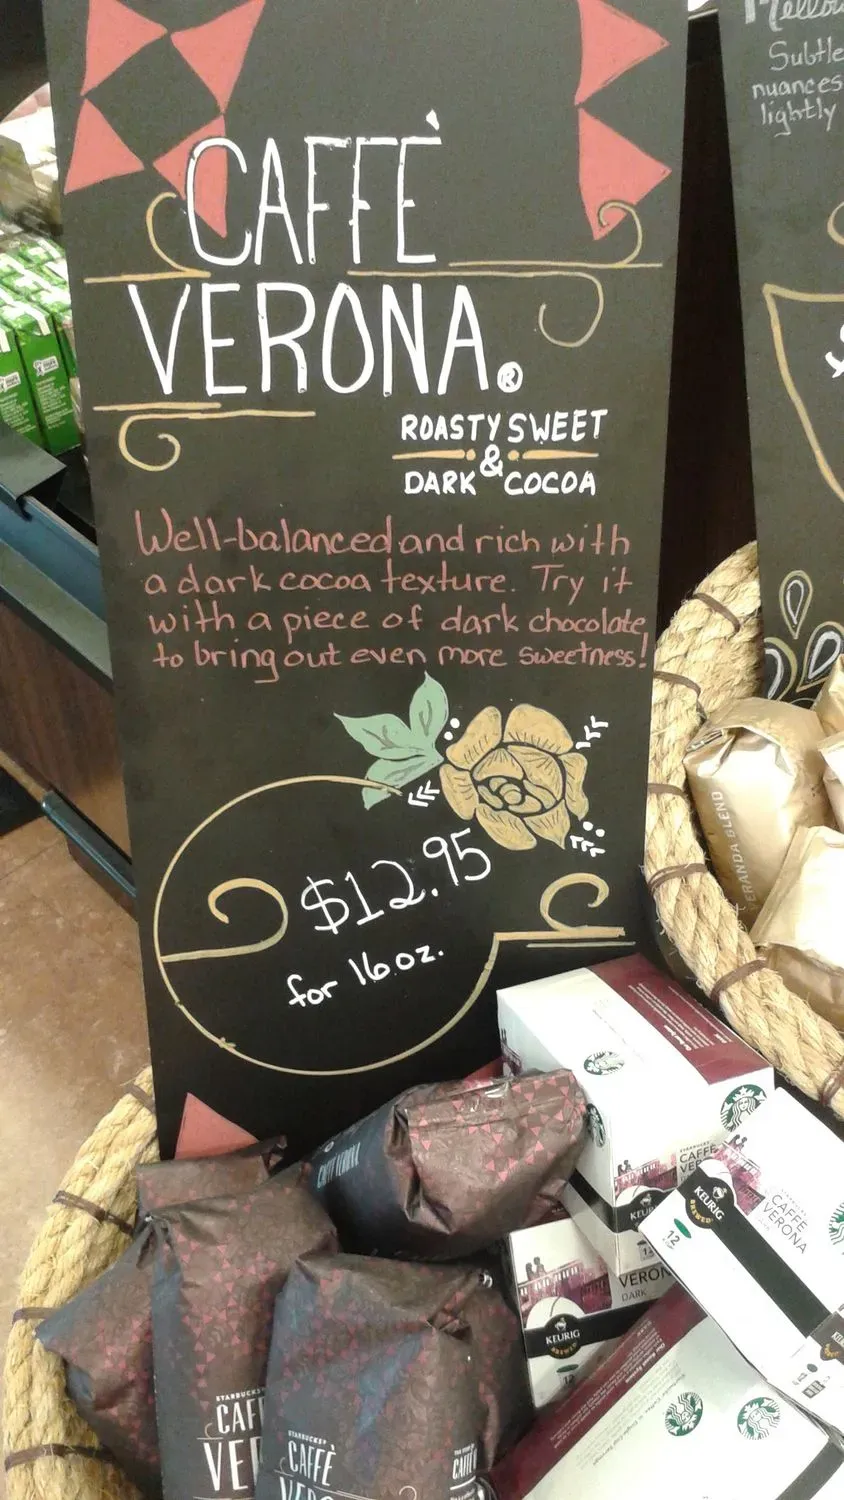 CAFFÈ
VERONA®
ROASTY SWEET
&
DARK COCOA
Well-balanced and rich with
a dark cocoa texture. Try it
with a piece of dark chocolate
to bring out even more sweetness!
$12.95
for 16 oz.
Subtle
nuances
lightly
VERANDA BLEND
CAFFÈ VERONA
CAFFÈ
VER
KEURIG
BREWED
12
STARBUCKS
CAFFÈ
VERONA
DARK
VERON
DARK
KEURIG
BREWED
12
STARBUCKS
CAF
VE
STARBUCKS
CAFFÈ
VERONA
CAFFÈ